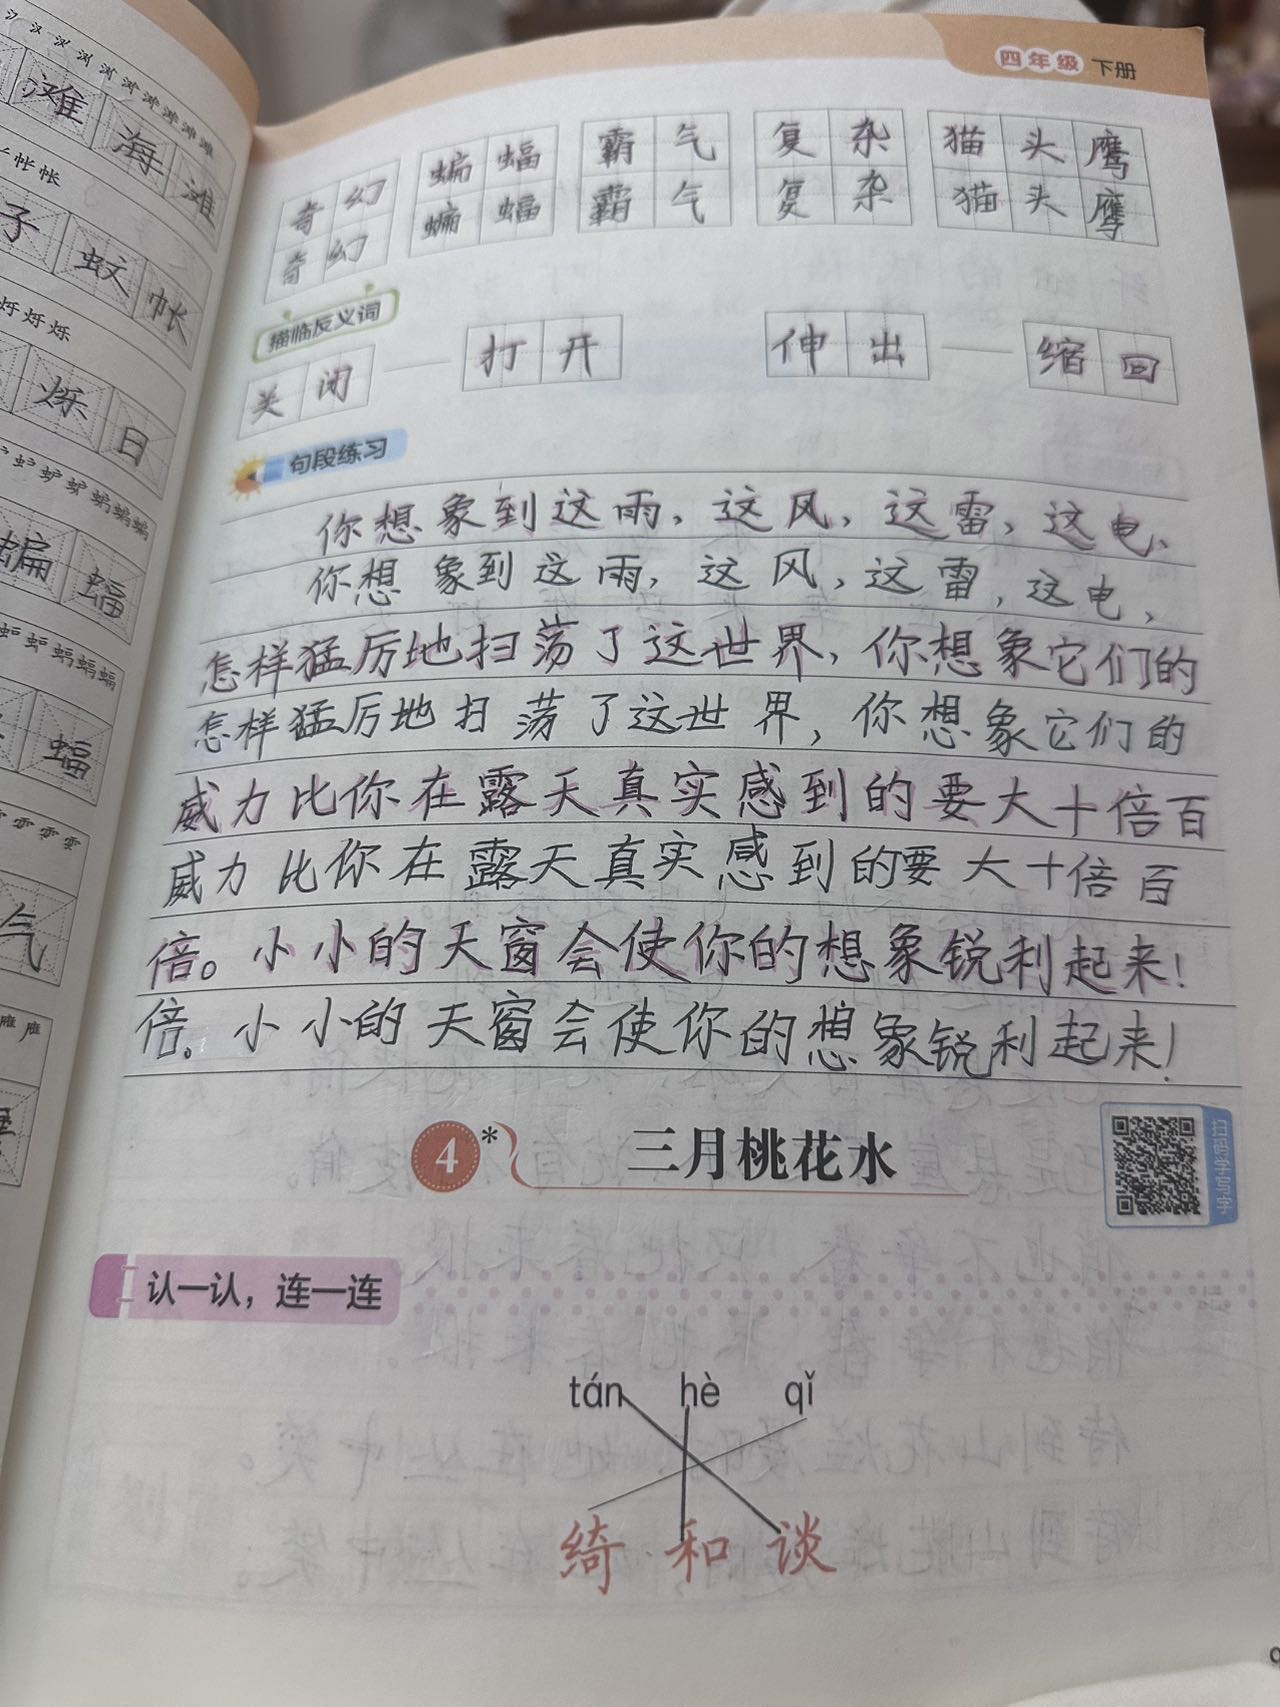 四年级 下册
滩 海 滩
帐
子 蚊 帐
烁
烁 日
蝙 蝠
蝠
气
奇幻 蝙蝠 霸气 复杂 猫头鹰
奇幻 蝙蝠 霸气 复杂 猫头鹰
描临反义词
关闭 — 打开 伸出 — 缩回
句段练习
你想象到这雨，这风，这雷，这电，
你想象到这雨，这风，这雷，这电，
怎样猛厉地扫荡了这世界，你想象它们的
怎样猛厉地扫荡了这世界，你想象它们的
威力比你在露天真实感到的要大十倍百
威力比你在露天真实感到的要大十倍百
倍。小小的天窗会使你的想象锐利起来！
倍。小小的天窗会使你的想象锐利起来！
4* 三月桃花水
扫码学写字
认一认，连一连
tán hè qǐ
绮 和 谈
9